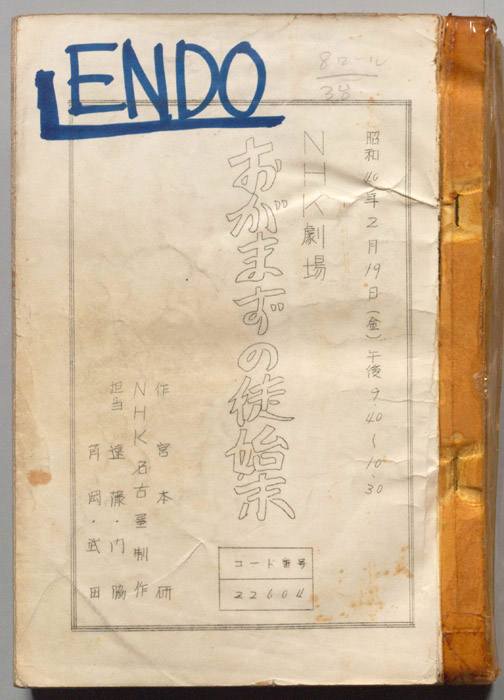 ENDO
8ロール
38
昭和46年2月19日(金)午後9.40~10.30
NHK劇場
おがまずの徒始末
作 宮本研
NHK名古屋制作
担当 遠藤・門脇
角岡・武田
コード番号
22604